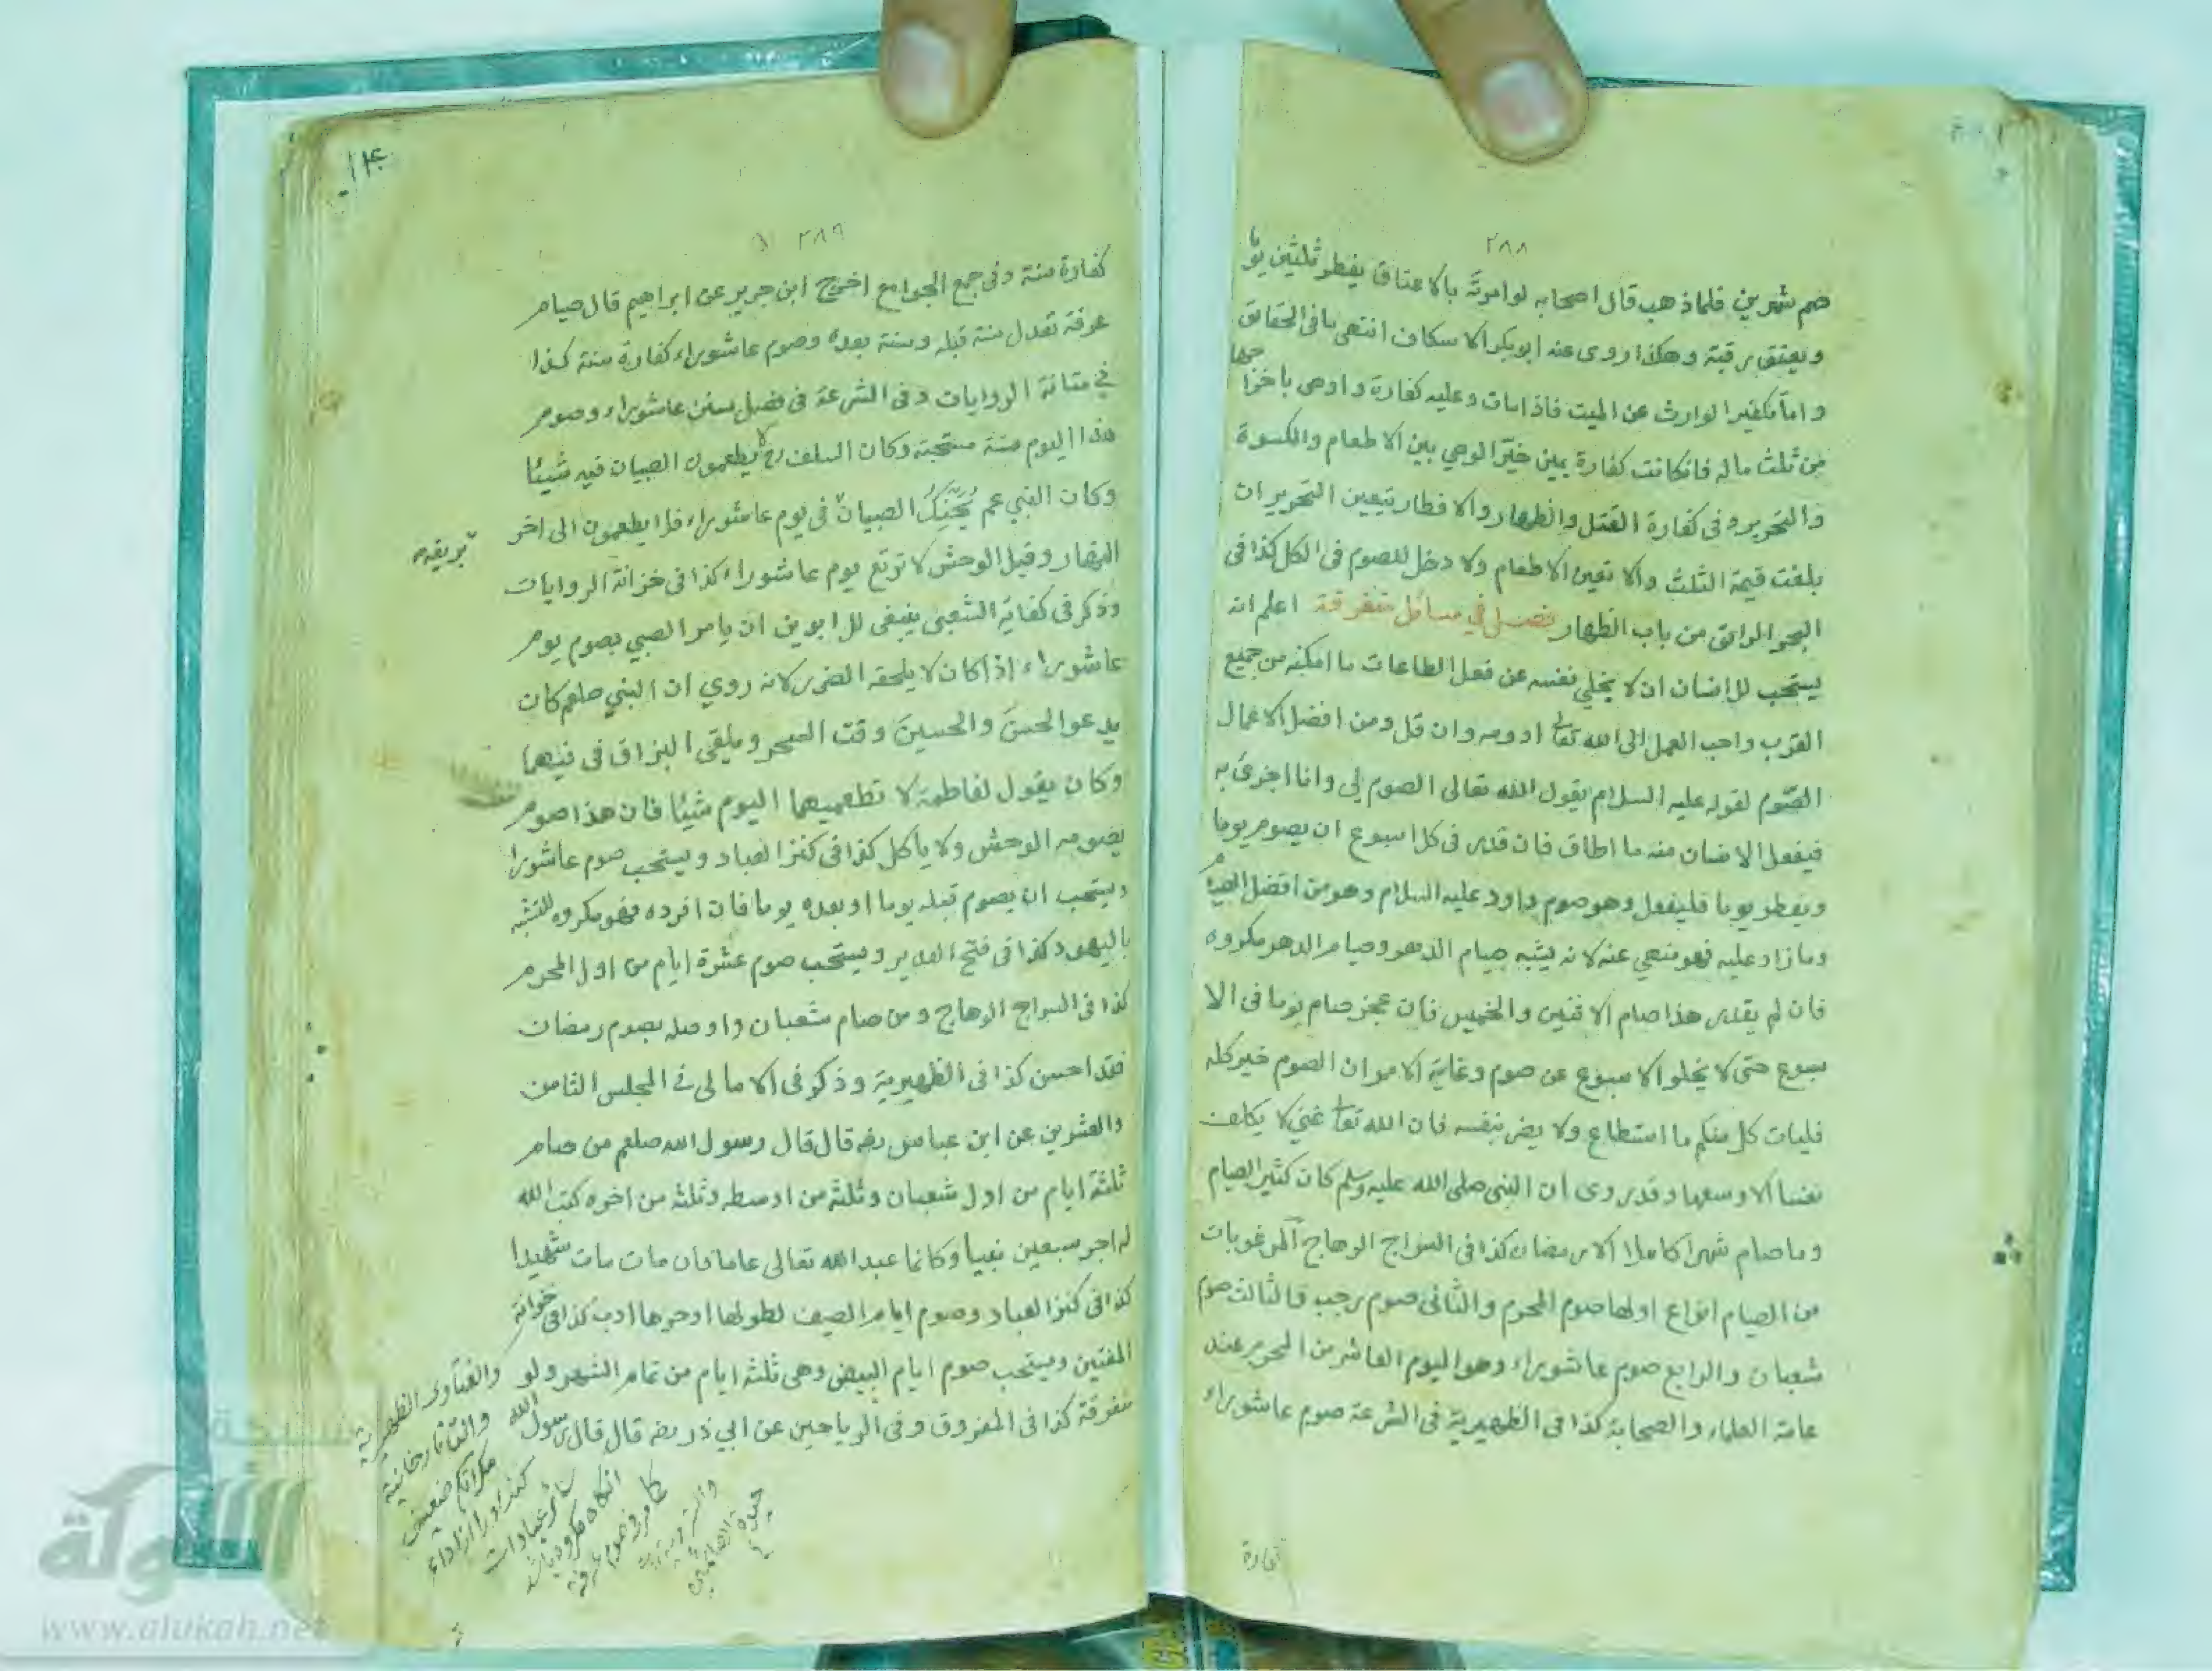 ٢٨٨
صم شهرين فلما ذهب قال اصحابه لو امرته بالاعتاق يفطر ثلثين يوما
ويعتق رقبة وهكذا روى عنه ابو بكر الاسكاف انتهى ما في الحقائق
واما تكفير الوارث عن الميت فاذا مات وعليه كفارة واوصى باخراجها
من ثلث ماله فان كانت كفارة يمين خير الوصي بين الاطعام والكسوة
والتحرير وفى كفارة القتل والظهار والافطار يتعين التحرير ان
بلغت قيمة الثلث والا تعين الاطعام ولا دخل للصوم فى الكل كذا فى
البحر الرائق من باب الظهار فصل في مسائل متفرقة اعلم انه
يستحب للانسان ان لا يخلي نفسه عن فعل الطاعات ما امكنه من جميع
القرب واحب العمل الى الله تعالى ادومه وان قل ومن افضل الاعمال
الصوم لقوله عليه السلام يقول الله تعالى الصوم لي وانا اجزى به
فيفعل الانسان منه ما اطاق فان قدر فى كل اسبوع ان يصوم يوما
ويفطر يوما فليفعل وهو صوم داود عليه السلام وهو من افضل الصيام
وما زاد عليه فهو منهي عنه لانه يشبه صيام الدهر وصيام الدهر مكروه
فان لم يقدر هذا صام الاثنين والخميس فان عجز صام يوما فى الا
سبوع حتى لا يخلو الاسبوع عن صوم وغاية الامر ان الصوم خير كله
فليات كل منكم ما استطاع ولا يضر بنفسه فان الله تعالى غني لا يكلف
نفسا الا وسعها وقد روى ان النبى صلى الله عليه وسلم كان كثير الصيام
وما صام شهرا كاملا الا رمضان كذا فى السراج الوهاج المرغوبات
من الصيام انواع اولها صوم المحرم والثانى صوم رجب والثالث صوم
شعبان والرابع صوم عاشوراء وهو اليوم العاشر من المحرم عند
عامة العلماء والصحابة كذا فى الظهيرية فى الشرعة صوم عاشوراء
كفارة
٢٨٩
كفارة سنة وفى جمع الجوامع اخرج ابن جرير عن ابراهيم قال صيام
عرفة تعدل سنة قبله وسنة بعده وصوم عاشوراء كفارة سنة كذا
في متانة الروايات وفى الشرعة فى فصل سنن عاشوراء وصوم
هذا اليوم سنة مستحبة وكان السلف رح لا يطعمون الصبيان فيه شيئا
وكان النبي عم يحنك الصبيان فى يوم عاشوراء فلا يطعمون الى اخر
بريقه
النهار وقيل الوحش لا ترتع يوم عاشوراء كذا فى خزانة الروايات
وذكر فى كفاية الشعبى ينبغى للابوين ان يامر الصبي بصوم يوم
عاشوراء اذا كان لا يلحقه الضرر لانه روي ان النبي صلعم كان
يدعو الحسن والحسين وقت السحر ويلقى البزاق فى فيهما
وكان يقول لفاطمة لا تطعميهما اليوم شيئا فان هذا صوم
يصومه الوحش ولا ياكل كذا فى كنز العباد ويستحب صوم عاشورا
ويستحب ان يصوم قبله يوما او بعده يوما فان افرده فهو مكروه للتشبه
باليهود كذا فى فتح القدير ويستحب صوم عشرة ايام من اول المحرم
كذا فى السراج الوهاج ومن صام شعبان واوصله بصوم رمضان
فقد احسن كذا فى الظهيرية وذكر فى الامالى في المجلس الثامن
والعشرين عن ابن عباس رضه قال قال رسول الله صلعم من صام
ثلثة ايام من اول شعبان وثلثة من اوسطه وثلثة من اخره كتب الله
له اجر سبعين نبيا وكانما عبد الله تعالى عاما فان مات مات شهيدا
كذا فى كنز العباد وصوم ايام الصيف لطولها او حرها ادب كذا فى خزانة
المفتين ويستحب صوم ايام البيض وهى ثلثة ايام من تمام الشهر ولو
متفرقة كذا فى المفروق وفى الرياحين عن ابي ذر رضه قال قال رسول الله
والفتاوى الظهيرية
والتاتارخانية
سائر عبادات
شبكة
الألوكة
www.alukah.net